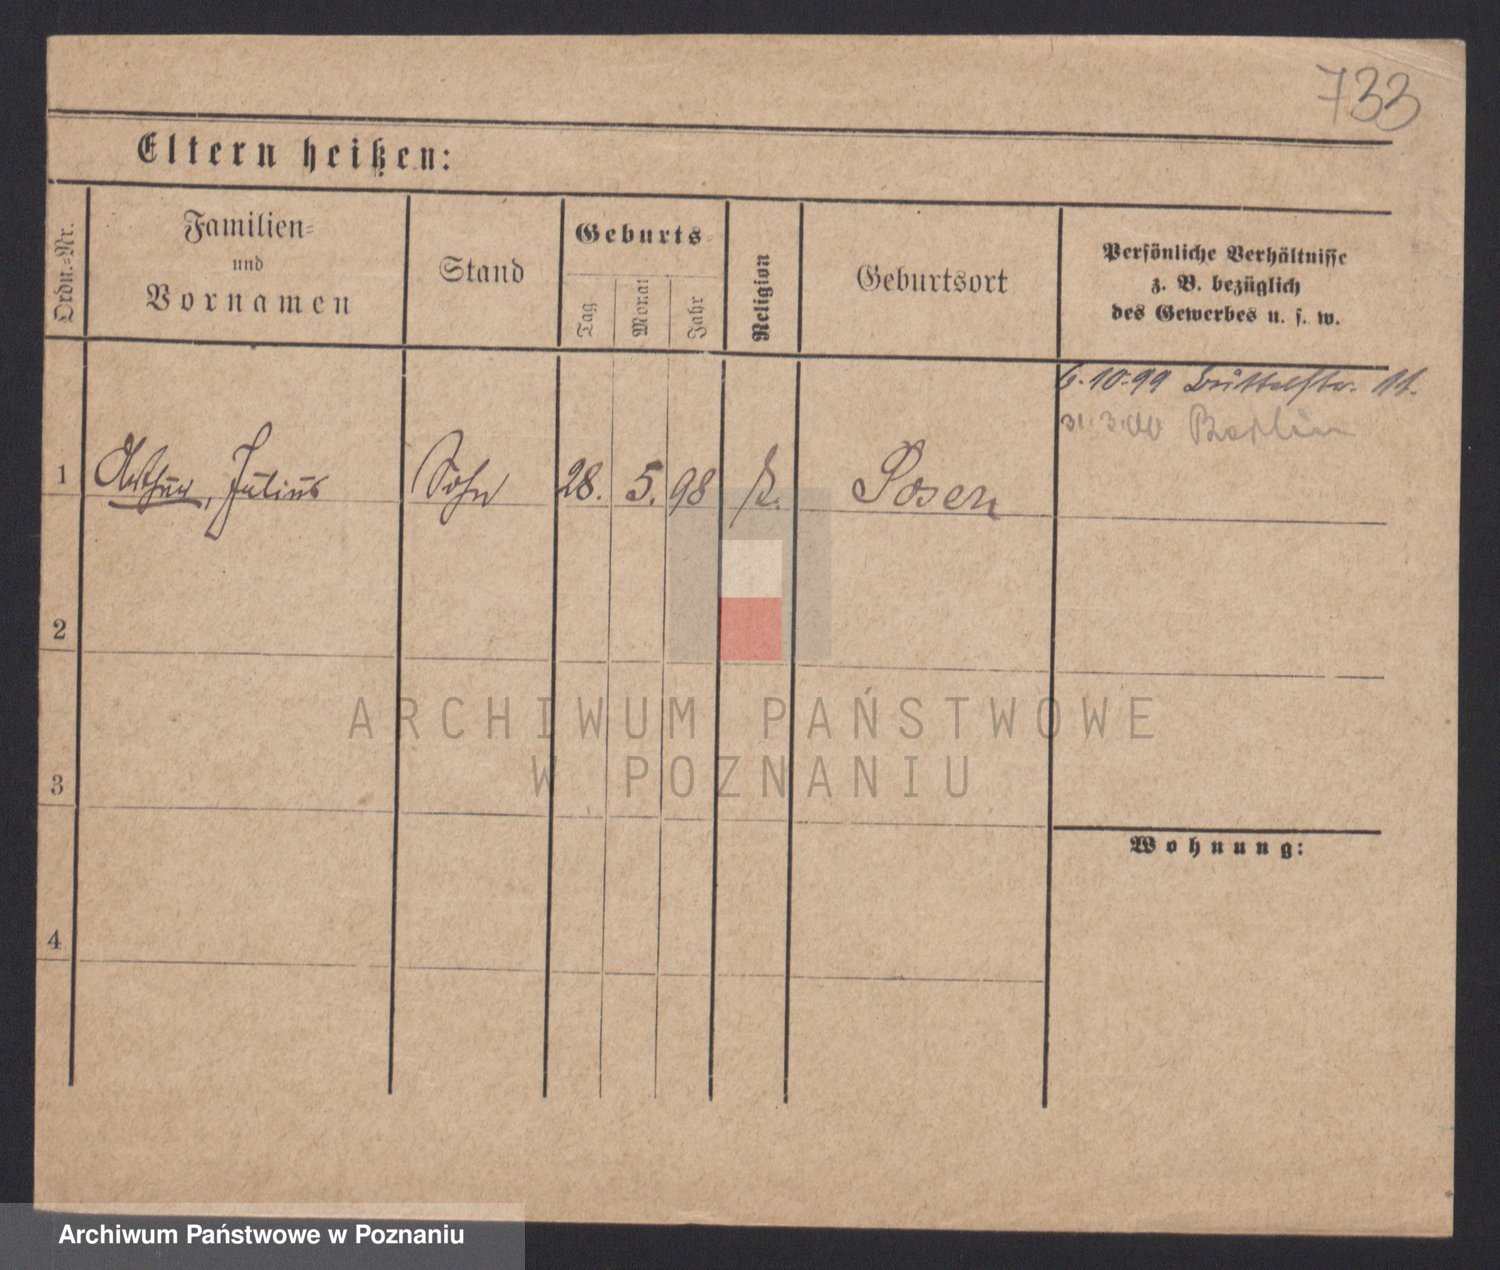 733
Eltern heißen:
Ordn.-Nr.
Familien-
und
Vornamen
Stand
Geburts-
Tag
Monat
Jahr
Religion
Geburtsort
Persönliche Verhältnisse
z. B. bezüglich
des Gewerbes u. s. w.
6.10.99 Büttelstr. 11.
31.3.00 Berlin
1 Arthur, Julius Sohn 28. 5. 98 k. Posen
2
3
4
Wohnung:
ARCHIWUM PAŃSTWOWE
W POZNANIU
Archiwum Państwowe w Poznaniu